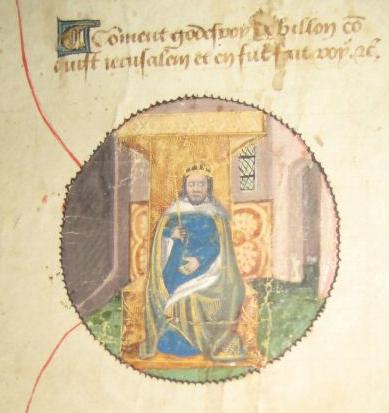 Coment godefroy de billon cō
quist ierusalem et en fut fait roy. ⁊c.